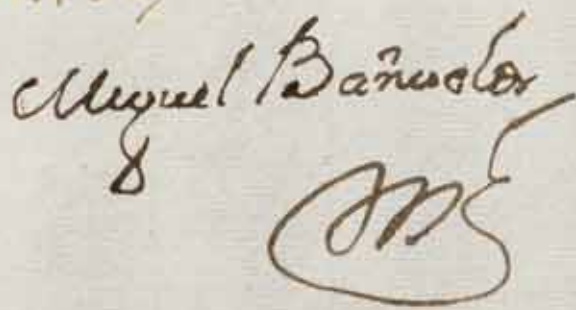 Miguel Bañuelos